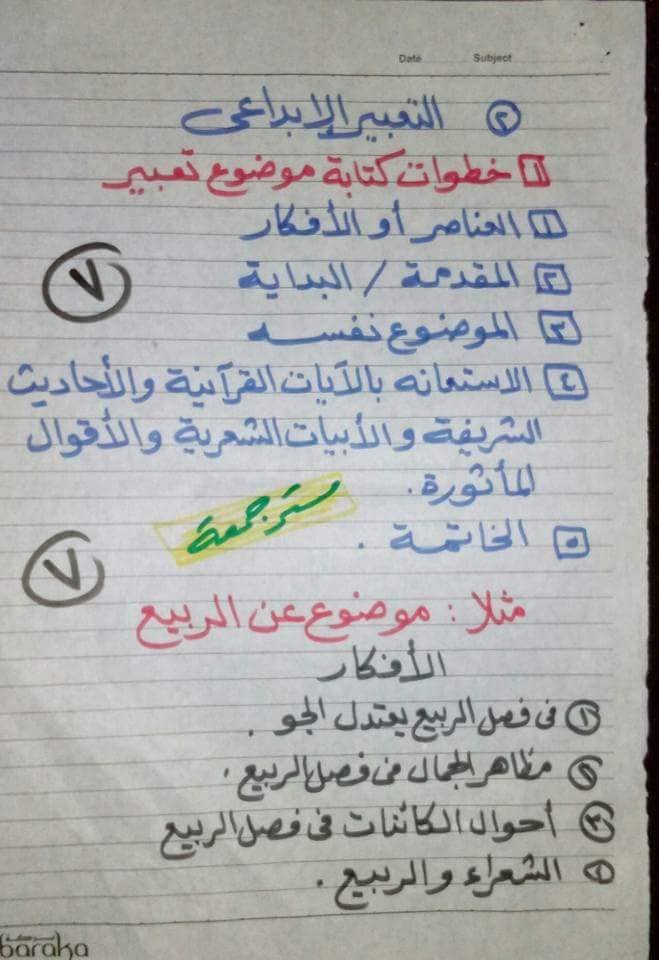 Date Subject
٢ التعبير الإبداعى
١ خطوات كتابة موضوع تعبير
١ العناصر أو الأفكار
٢ المقدمة / البداية
٧
٣ الموضوع نفسه
٤ الاستعانه بالآيات القرآنية والأحاديث
الشريفة والأبيات الشعرية والأقوال
المأثورة.
مستر جمعة
٥ الخاتمة .
٧
مثلا : موضوع عن الربيع
الأفكار
١ فى فصل الربيع يعتدل الجو .
٢ مظاهر الجمال فى فصل الربيع .
٣ أحوال الكائنات فى فصل الربيع
٤ الشعراء والربيع .
baraka بركة